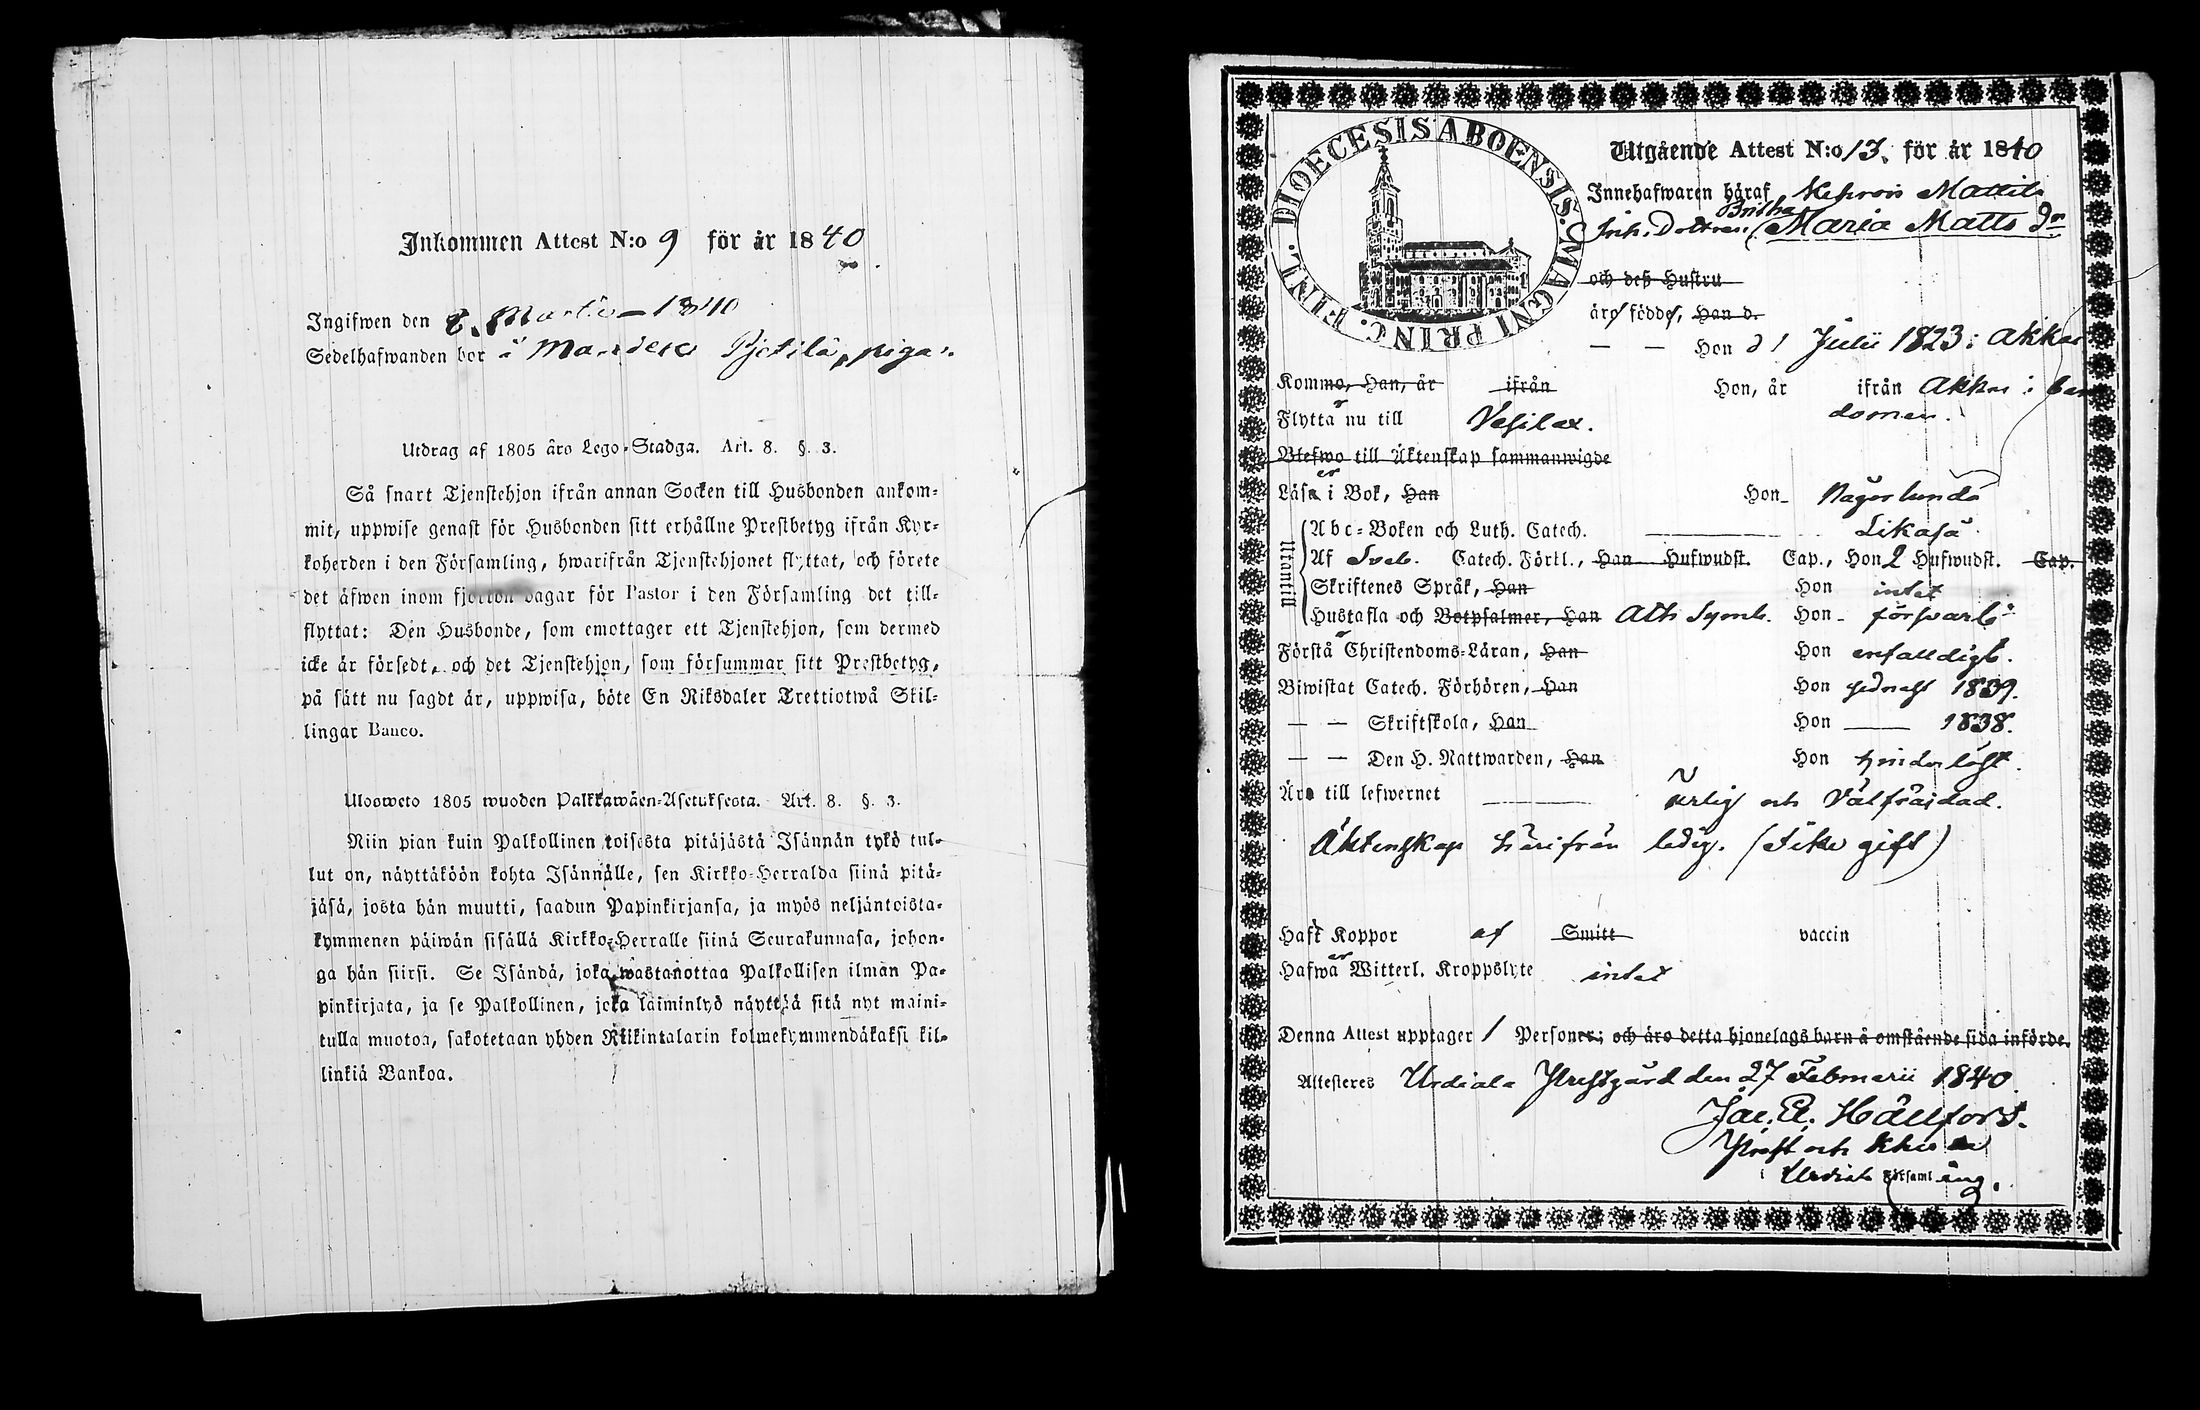 Inkommen Attest N:o 9 för år 1840
Ingifwen den 8. Martii 1840
Sedelhafwanden bor i Pjetilä, piga
Utdrag af 1805 års Lego-Stadga. Art. 8. §. 3.
Så snart Tjenstehjon ifrån annan Socken till Husbonden ankom-
mit, uppwise genast för Husbonden sitt erhållne Prestbetyg ifrån Kyr-
koherden i den Församling, hwarifrån Tjenstehjonet flyttat, och förete
det äfwen inom fjorton dagar för Pastor i den Församling det till-
flyttat: Den Husbonde, som emottager ett Tjenstehjon, som dermed
icke är försedt, och det Tjenstehjon, som försummar sitt Prestbetyg,
på sätt nu sagdt är, uppwisa, böte En Riksdaler Trettiotwå Skil-
lingar Banco.
Uloosweto 1805 wuoden Palkkawäen-Asetuksesta. Art. 8. §. 3.
Niin pian kuin Palkollinen toisesta pitäjästä Isännän tykö tul-
lut on, näyttäköön kohta Isännälle, sen Kirkko-Herralda siinä pitä-
jäsä, josta hän muutti, saadun Papinkirjansa, ja myös neljäntoista-
kymmenen päiwän sisällä Kirkko-Herralle siinä Seurakunnasa, johon-
ga hän siirsi. Se Isändä, joka wastanottaa Palkollisen ilman Pa-
pinkirjata, ja se Palkollinen, joka laiminlyö näyttää sitä nyt maini-
tulla muotoa, sakotetaan yhden Riikintalarin kolmekymmendäkaksi kil-
linkiä Bankoa.
DIOECESIS ABOENSIS. MAGNI PRINC. FINL.
Utgående Attest N:o 13. för år 1840
Innehafwaren häraf Mattila
Britha
Dottren Maria Matts dr
och deß Hustru
äro födde, Han d.
— — Hon d 1 Julii 1823 i Akkas
Kommo, Han, år ifrån Hon, år ifrån Akkas i barn
domen.
Flytta r nu till Vesilax.
Blefwo till Äktenskap sammanwigde
Läsa er i Bok, Han Hon någorlunda
Utantill
Abc-Boken och Luth. Catech. Likaså
Af Sveb. Catech. Förkl., Han Hufwudst. Cap., Hon 2 Hufwudst. Cap.
Skriftenes Språk, Han Hon intet
Hustafla och Botpsalmer, Han Ath Symb. Hon försvarl:
Förstå r Christendoms-Läran, Han Hon enfaldigt.
Biwistat Catech. Förhören, Han Hon sednast 1839.
— — Skriftskola, Han Hon — 1838.
— — Den H. Nattwarden, Han Hon hinderlöst.
Äro till lefwernet ärlig och Välfräjdad.
Äktenskap härifrån ledig. (Icke gift)
Haft Koppor af Smitt vaccin
Hafwa er Witterl. Kroppslyte intet
Denna Attest upptager 1 Personer; och äro detta hjonelags barn å omstående sida införde.
Attesteres Urdiala Prestgård den 27 Februarii 1840.
Jac. El. Hällfors.
Prost och Khde i
Urdiala Församling.